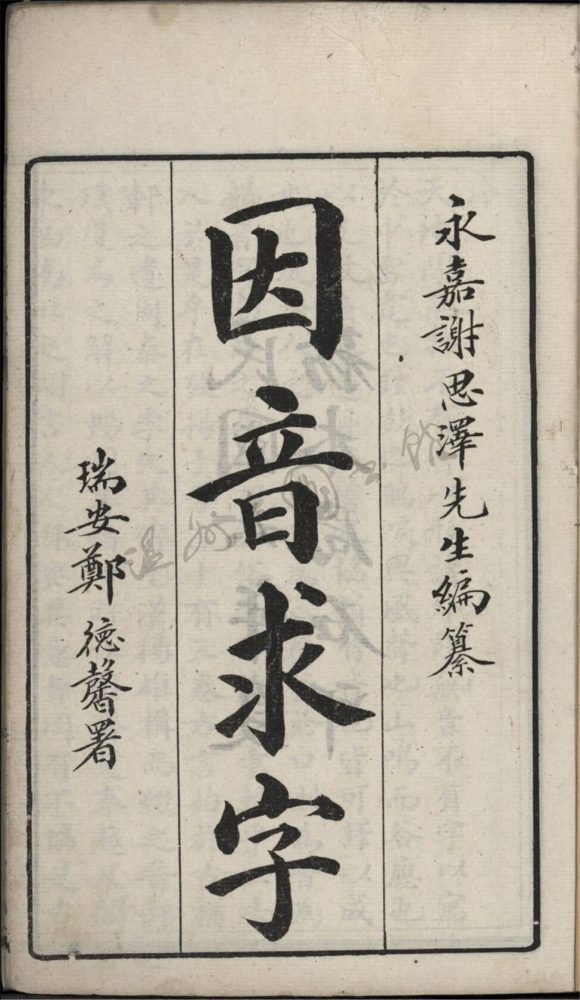 永嘉謝思澤先生編纂
因音求字
瑞安鄭德馨署